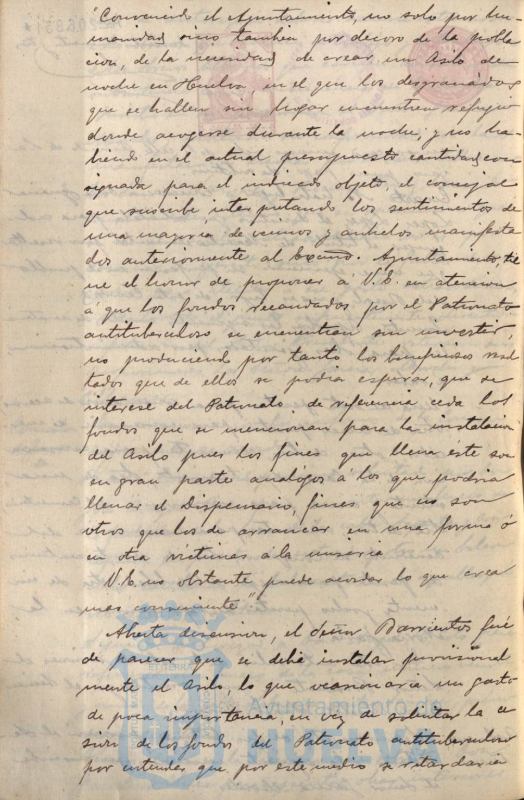 "Convencido el Ayuntamiento, no solo por hu-
manidad, sino tambien por decoro de la pobla-
cion, de la necesidad de crear un Asilo de
noche en Huelva, en el que los desgraciados
que se hallen sin hogar encuentren refugio
donde acogerse durante la noche; y no ha-
biendo en el actual presupuesto cantidad con
signada para el indicado objeto, el concejal
que suscribe, interpretando los sentimientos de
una mayoria de vecinos y anhelos manifesta
dos anteriormente al Excmo. Ayuntamiento, tie
ne el honor de proponer á V.E. en atencion
á que los fondos recaudados por el Patronato
antituberculoso se encuentran sin invertir,
no produciendo por tanto los beneficiosos resul
tados que de ellos se podia esperar, que se
interese del Patronato de referencia ceda los
fondos que se mencionan para la instalacion
del Asilo pues los fines que llena éste son
en gran parte analogos á los que podria
llenar el Dispensario, fines que no son
otros que los de arrancar en una forma ó
en otra victimas á la miseria.
V.E. no obstante puede acordar lo que crea
mas conveniente."
Abierta discusion, el señor Barrientos fué
de parecer que se debia instalar provisional
mente el Asilo, lo que ocasionaria un gasto
de poca importancia, en vez de solicitar la ce
sion de los fondos del Patronato antituberculoso
por entender que, por este medio se retardaria
Ayuntamiento de
HUELVA